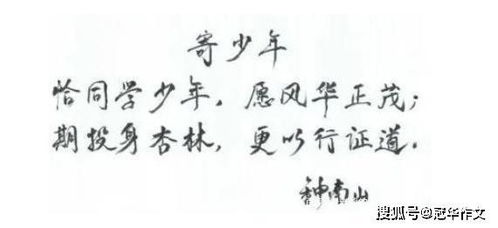 寄少年
恰同学少年，愿风华正茂；
期投身杏林，更以行证道。
钟南山
搜狐号@冠华作文